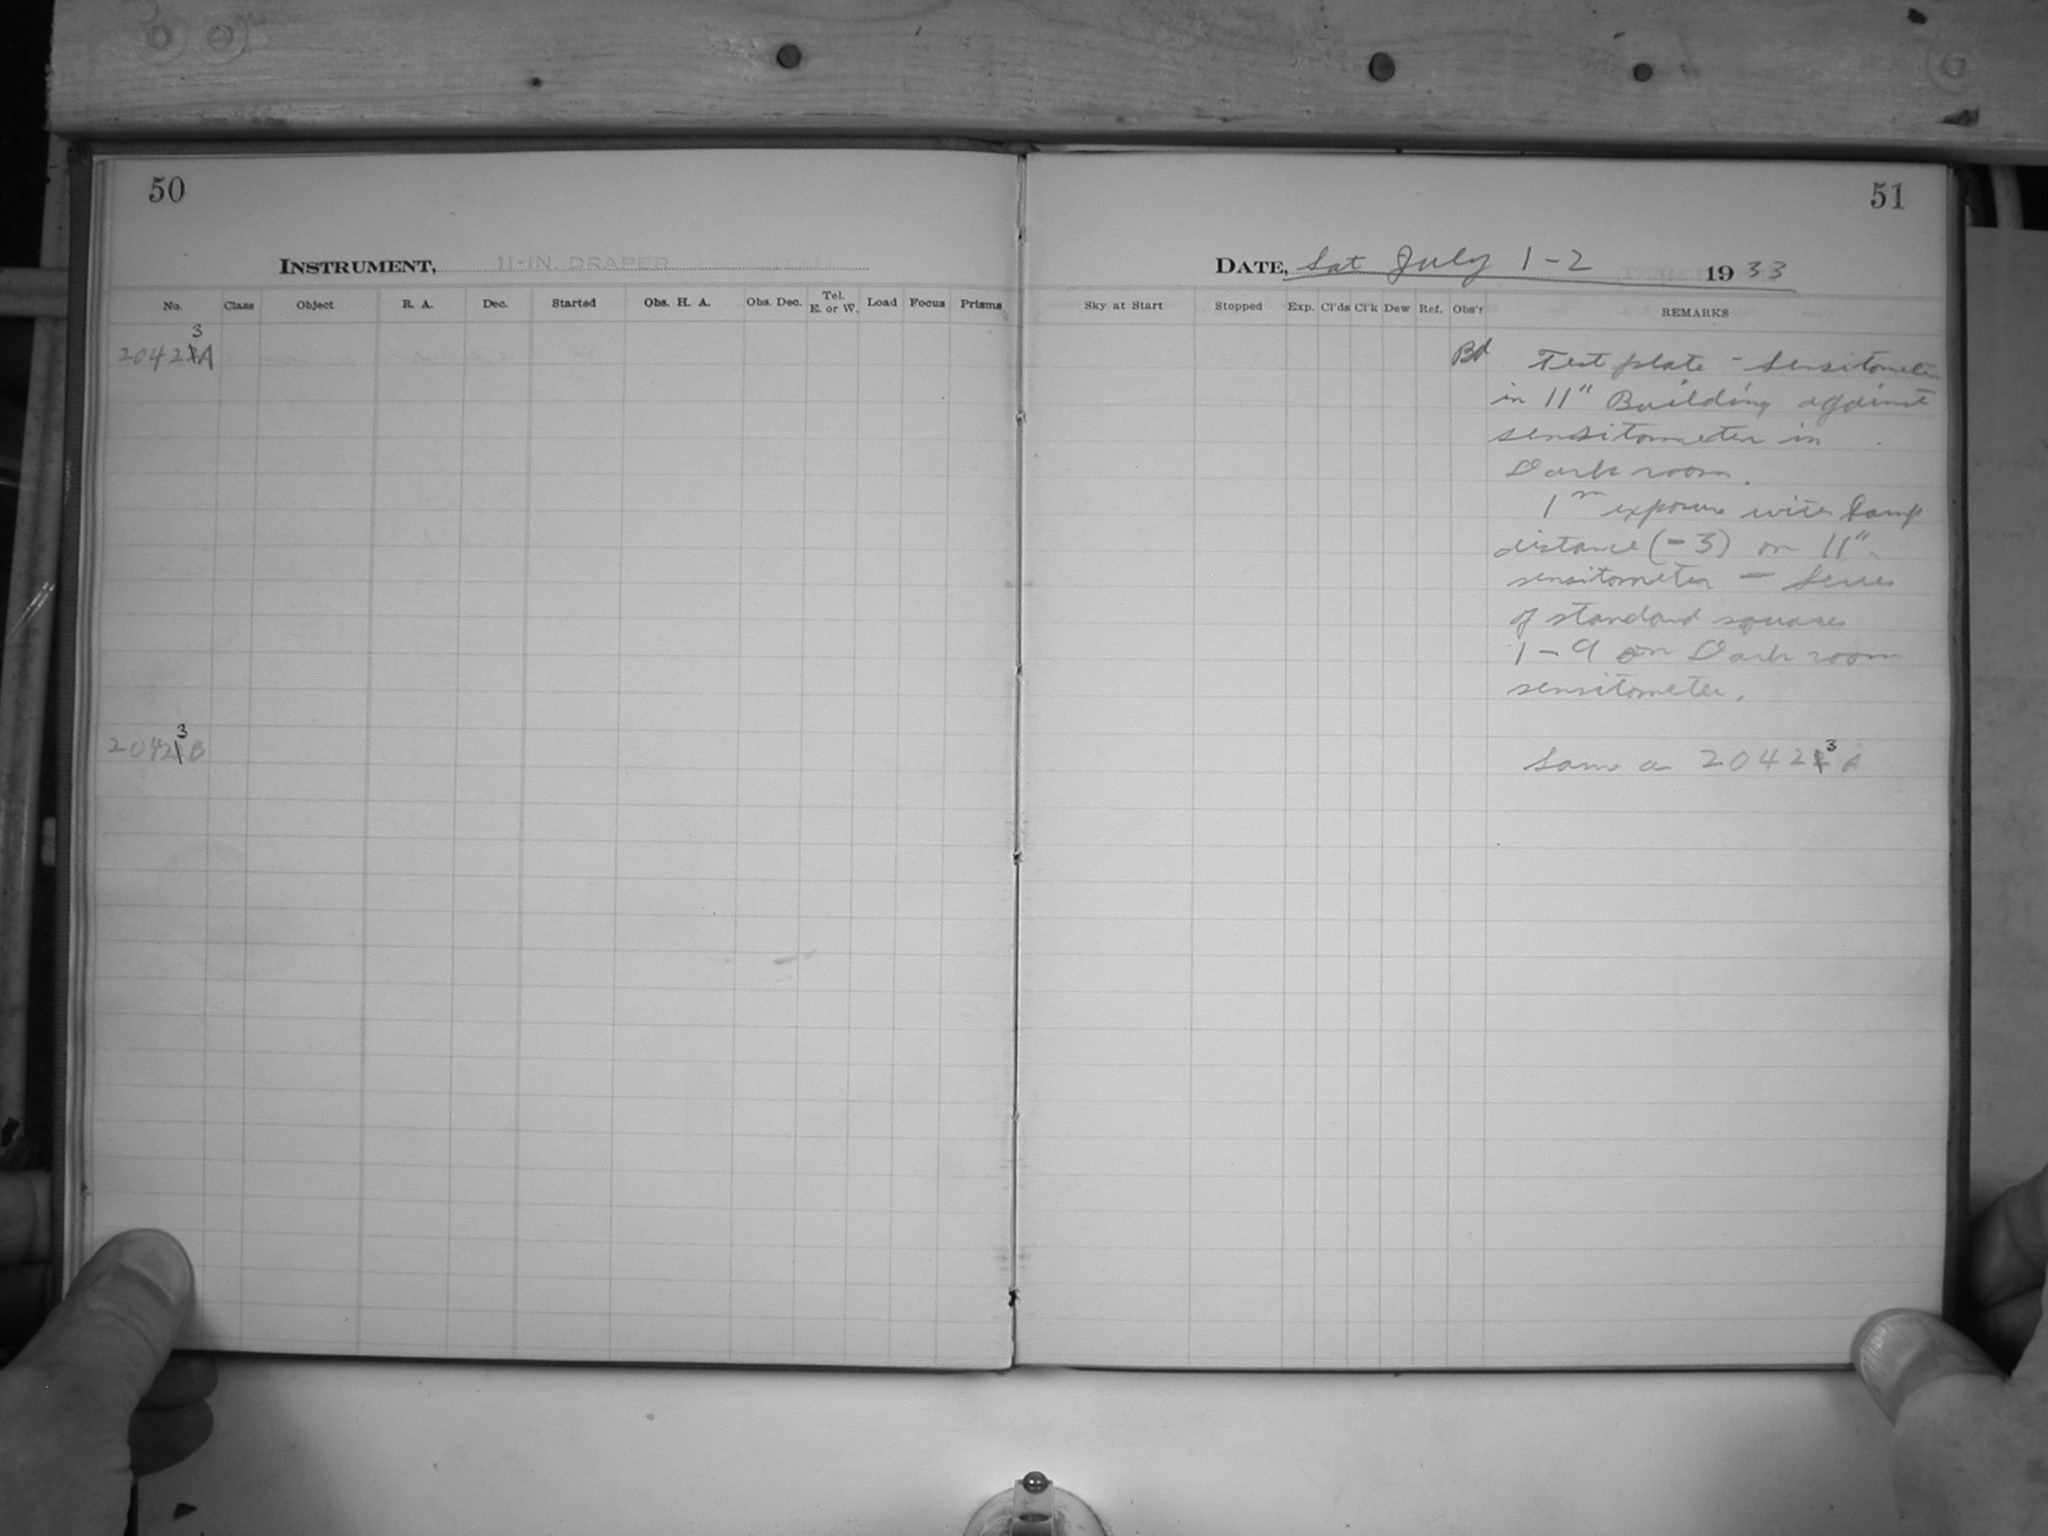 50
INSTRUMENT, 11-IN. DRAPER
No. Class Object R. A. Dec. Started Obs. H. A. Obs. Dec. Tel. E. or W. Load Focus Prisms
3
2042 A
3
2042 B
51
DATE, Sat July 1-2 1933
Sky at Start Stopped Exp. Cl'ds Cl'k Dew Ref. Obs'r REMARKS
Bd Test plate - Sensitometer
in 11" Building against
sensitometer in
Dark room.
1m exposure with lamp
distance (-3) on 11"
sensitometer - Series
of standard squares
1-9 on Dark room
sensitometer.
3
Same as 2042 A